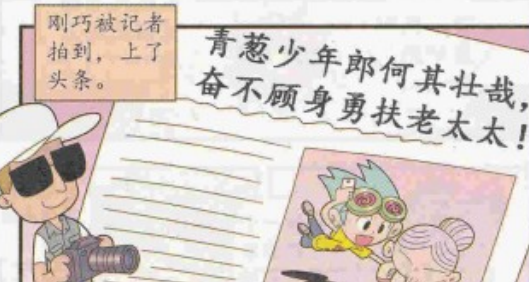 刚巧被记者
拍到，上了
头条。
青葱少年郎何其壮哉，
奋不顾身勇扶老太太！